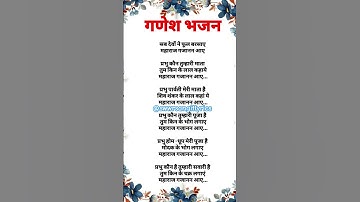 गणेश भजन
सब देवों ने फूल बरसाए
महाराज गजानन आए
प्रभु कौन तुम्हारी माता
तुम किन के लाल कहाये
महाराज गजानन आए...
प्रभु पार्वती मेरी माता है
शिव शंकर के लाल कहा ये
महाराज गजानन आए...
प्रभु कौन तुम्हारी पूजा है
तुम किन के भोग लगाए
महाराज गजानन आए...
प्रभु होम -धूप मेरी पूजा है
मोदक के भोग लगाए
महाराज गजानन आए...
प्रभु कौन है तुम्हारी सवारी है
तुम किन के चक्र लगाएं
महाराज गजानन आए...